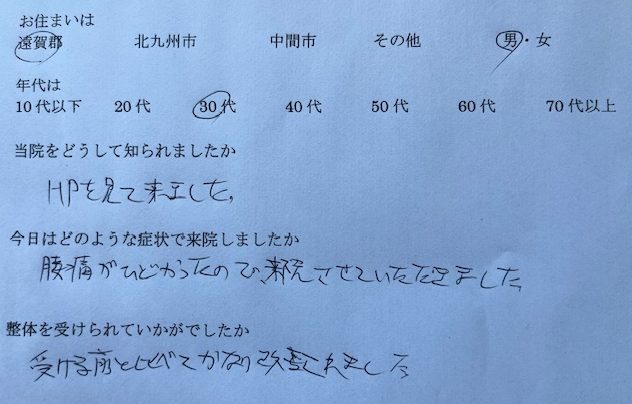 お住まいは
遠賀郡 北九州市 中間市 その他 男・女
年代は
10代以下 20代 30代 40代 50代 60代 70代以上
当院をどうして知られましたか
HPを見て来ました。
今日はどのような症状で来院しましたか
腰痛がひどかったので、来院させていただきました。
整体を受けられていかがでしたか
受ける前と比べてかなり改善されました。